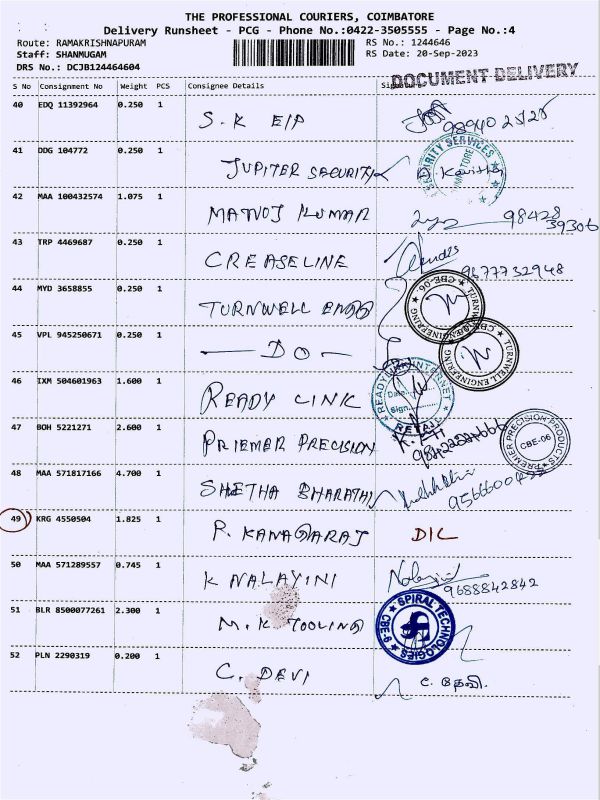 THE PROFESSIONAL COURIERS, COIMBATORE
Delivery Runsheet - PCG - Phone No.:0422-3505555 - Page No.:4
Route: RAMAKRISHNAPURAM RS No.: 1244646
Staff: SHANMUGAM RS Date: 20-Sep-2023
DRS No.: DCJB124464604
DOCUMENT DELIVERY
S No Consignment No Weight PCS Consignee Details Signature
40 EDQ 11392964 0.250 1 S.K EIP 98940 25125
41 DDG 104772 0.250 1 JUPITER SECURITY SECURITY SERVICES Kavitha
42 MAA 100432574 1.075 1 MANOJ KUMAR 98428
39306
43 TRP 4469687 0.250 1 CREASELINE 9677732948
44 MYD 3658855 0.250 1 TURNWELL ENGG TURNWELL ENGINEERING CBE-06
45 VPL 945250671 0.250 1 — DO — TURNWELL ENGINEERING
46 IXM 504601963 1.600 1 READY LINK Date Sign RETAIL
47 BOH 5221271 2.600 1 PRIEMER PRECISION PREMIER PRECISION PRODUCTS CBE-06
48 MAA 571817166 4.700 1 SHETHA BHARATHI
49 KRG 4550504 1.825 1 R. KANAGARAJ DIL
50 MAA 571289557 0.745 1 K NALAYINI 9688842842
51 BLR 8500077261 2.300 1 M.K TOOLING SPIRAL TECHNOLOGIES CBE-9
52 PLN 2290319 0.200 1 C. DEVI C. தேவி.